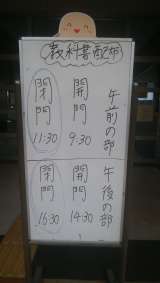 教科書配布
午前の部
開門
9:30
閉門
11:30
午後の部
開門
14:30
閉門
16:30